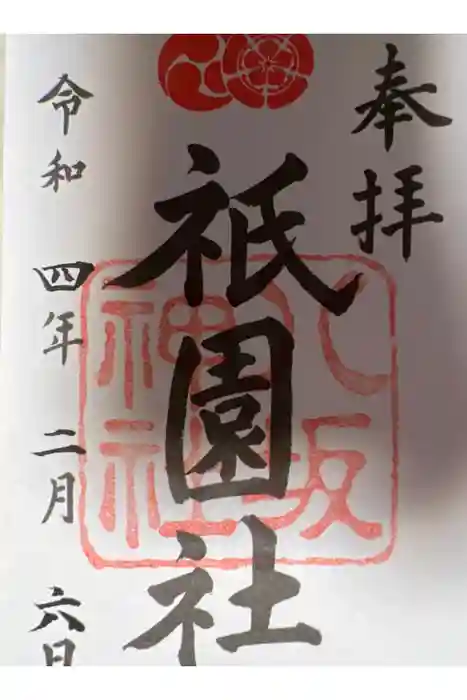 奉拝
八坂
神社
祇園社
令和四年二月六日